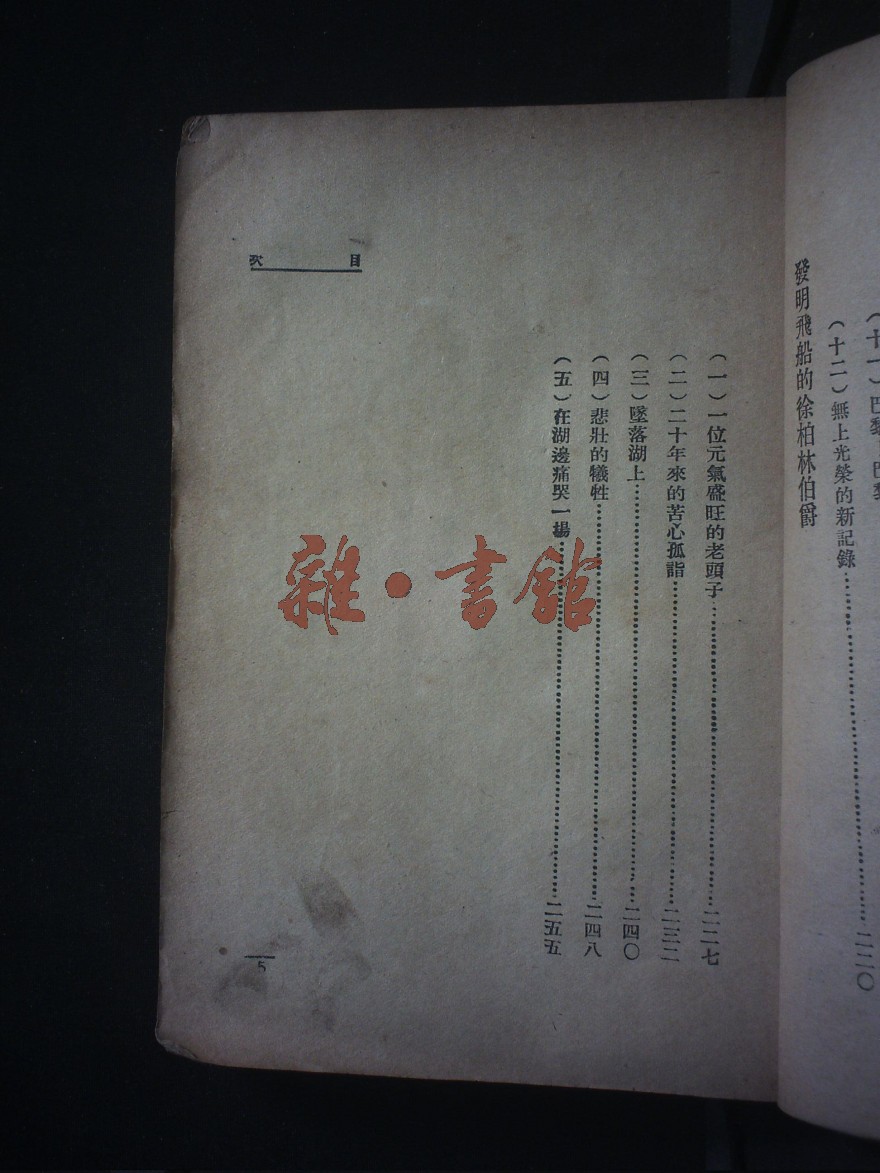 (十二)無上光榮的新記錄……二二〇
發明飛船的徐柏林伯爵
(一)一位元氣盛旺的老頭子……二二七
(二)二十年來的苦心孤詣……二三二
(三)墜落湖上……二四〇
(四)悲壯的犧牲……二四八
(五)在湖邊痛哭一場……二五五
目次
5
雜·書館